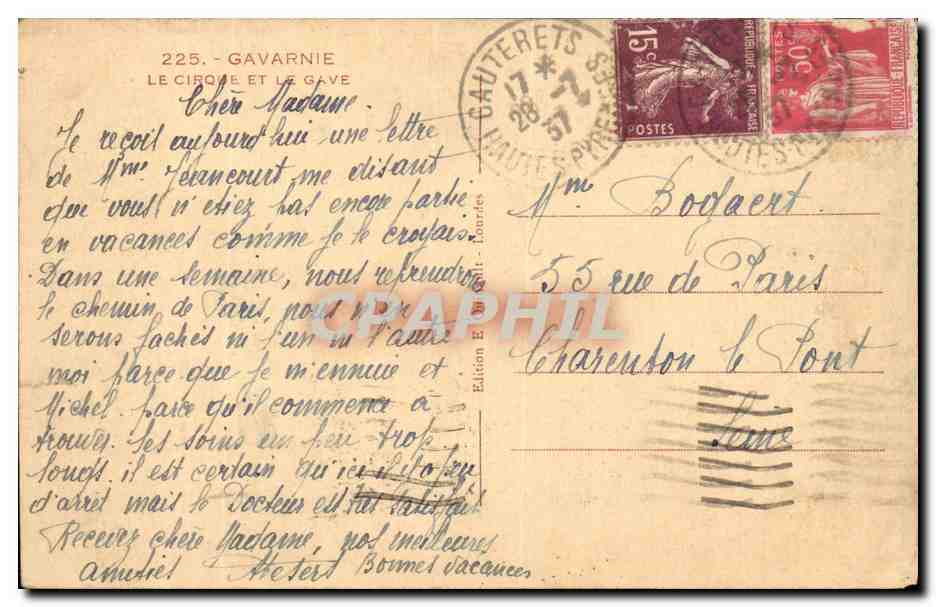 225. - GAVARNIE
LE CIRQUE ET LE GAVE
Chère Madame.
Je reçois aujourd'hui une lettre
de Mme Jeancourt me disant
que vous n'étiez pas encore partie
en vacances comme je le croyais.
Dans une semaine, nous reprendrons
le chemin de Paris, nous n'en
serons fachés ni l'un ni l'autre
moi parce que je m'ennuie et
Michel parce qu'il commence à
trouver les soins un peu trop
longs. il est certain qu'ici il y a peu
d'arret mais le Docteur est très satisfait
Recevez chère Madame, nos meilleures
amitiés Bonnes Vacances
Edition E - Lourdes
CAUTERETS
17 * 28 -7 37
HAUTES PYRENEES
15c
REPUBLIQUE FRANÇAISE
POSTES
50c
REPUBLIQUE FRANÇAISE
Mme Bogaert
55 rue de Paris
Charenton le Pont
Seine
CPAPHIL